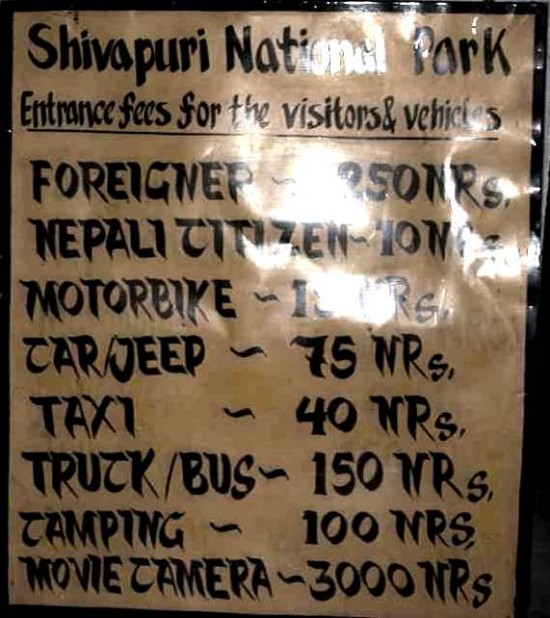 Shivapuri National Park
Entrance fees for the visitors & vehicles
FOREIGNER ~ 250 NRs.
NEPALI CITIZEN ~ 10 NRs.
MOTORBIKE ~ NRs.
CAR/JEEP ~ 75 NRs.
TAXI ~ 40 NRs.
TRUCK/BUS ~ 150 NRs.
CAMPING ~ 100 NRS.
MOVIE CAMERA ~ 3000 NRs